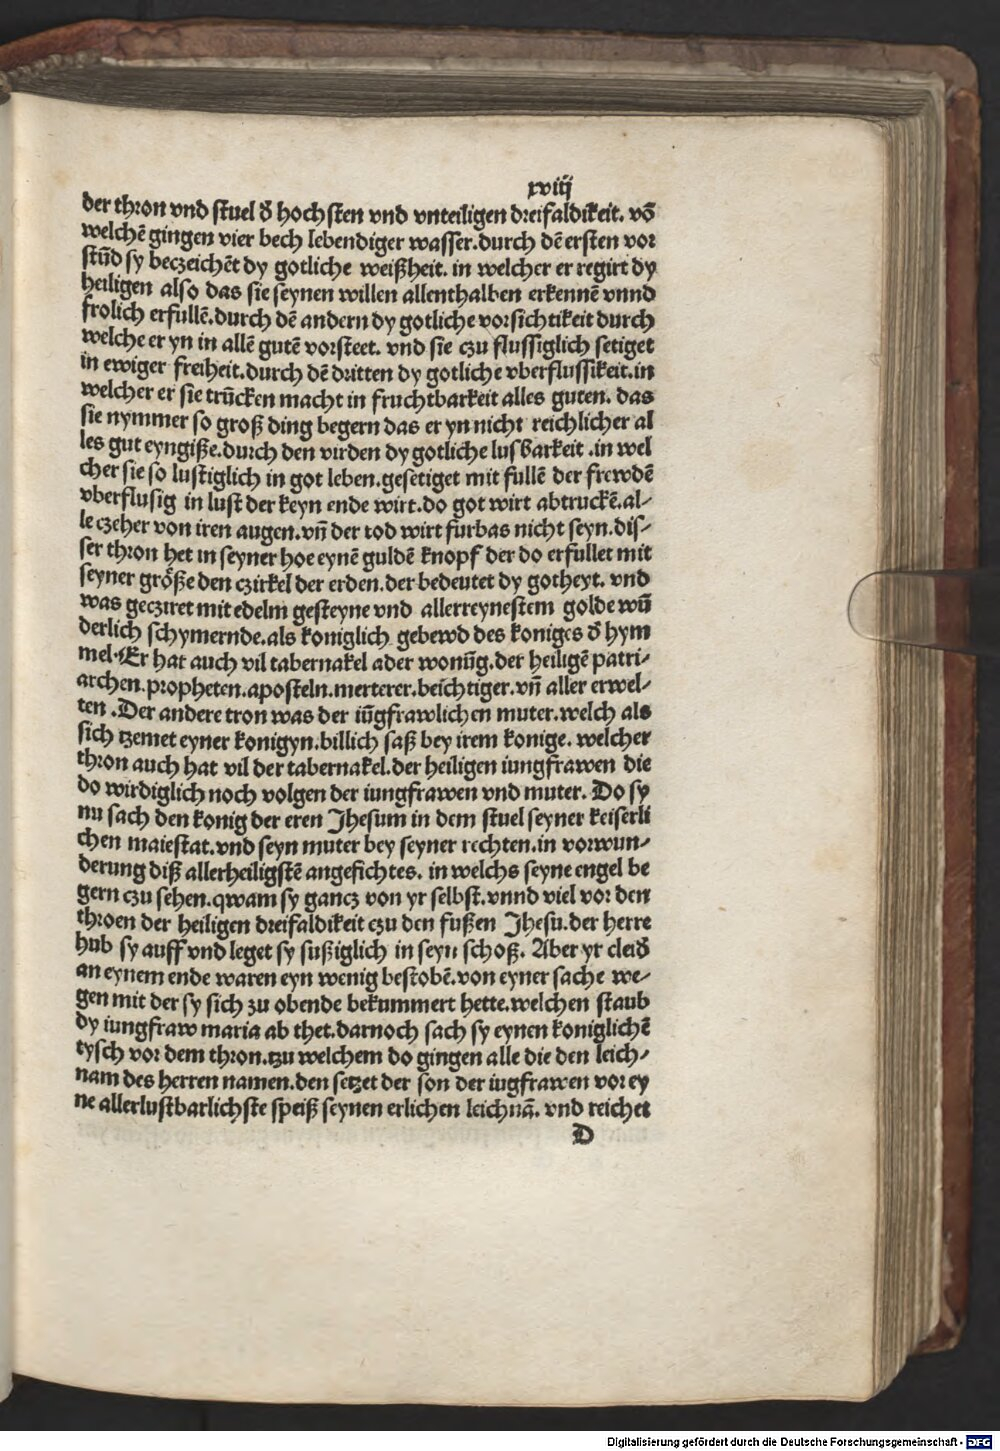 xviij
der thron vnd stuel d̕ hochsten vnd vnteiligen dreifaldikeit. vō
welchē gingen vier bech lebendiger wasser. durch dē ersten vor
stūd sy beczeichēt dy gotliche weißheit. in welcher er regirt dy
heiligen also das sie seynen willen allenthalben erkennē vnnd
frolich erfullē. durch dē andern dy gotliche vorsichtikeit durch
welche er yn in allē gutē vorsteet. vnd sie czu flussiglich setiget
in ewiger freiheit. durch dē dritten dy gotliche vberflussikeit. in
welcher er sie trūcken macht in fruchtbarkeit alles guten. das
sie nymmer so groß ding begern das er yn nicht reichlicher al
les gut eyngiße. durch den virden dy gotliche lusbarkeit .in wel
cher sie so lustiglich in got leben. gesetiget mit fullē der frewdē
vberflusig in lust der keyn ende wirt. do got wirt abtruckē. al-
le czeher von iren augen. vn̄ der tod wirt furbas nicht seyn. dis-
ser thron het in seyner hoe eynē guldē knopf der do erfullet mit
seyner größe den czirkel der erden. der bedeutet dy gotheyt. vnd
was gecziret mit edelm gesteyne vnd allerreynestem golde wū
derlich schymernde. als koniglich gebewd des koniges d̕ hym
mel. Er hat auch vil tabernakel ader wonūg. der heiligē patri-
archen. propheten. aposteln. merterer. beichtiger. vn̄ aller erwel-
ten .Der andere tron was der iūgfrawlichen muter. welch als
sich tzemet eyner konigyn. billich saß bey irem konige. welcher
thron auch hat vil der tabernakel. der heiligen iungfrawen die
do wirdiglich noch volgen der iungfrawen vnd muter. Do sy
nu sach den konig der eren Jhesum in dem stuel seyner keiserli
chen maiestat. vnd seyn muter bey seyner rechten. in vorwun-
derung diß allerheiligstē angesichtes. in welchs seyne engel be
gern czu sehen. qwam sy gancz von yr selbst. vnnd viel vor den
throen der heiligen dreifaldikeit czu den fußen Jhesu. der herre
hub sy auff vnd leget sy sußiglich in seyn schoß. Aber yr cleid̕
an eynem ende waren eyn wenig bestobē. von eyner sache we-
gen mit der sy sich zu obende bekummert hette. welchen staub
dy iungfraw maria ab thet. darnoch sach sy eynen koniglichē
tysch vor dem thron. tzu welchem do gingen alle die den leich-
nam des herren namen. den setzet der son der iūgfrawen vor ey
ne allerlustbarlichste speiß seynen erlichen leichnā. vnd reichet
D
Digitalisierung gefördert durch die Deutsche Forschungsgemeinschaft - DFG